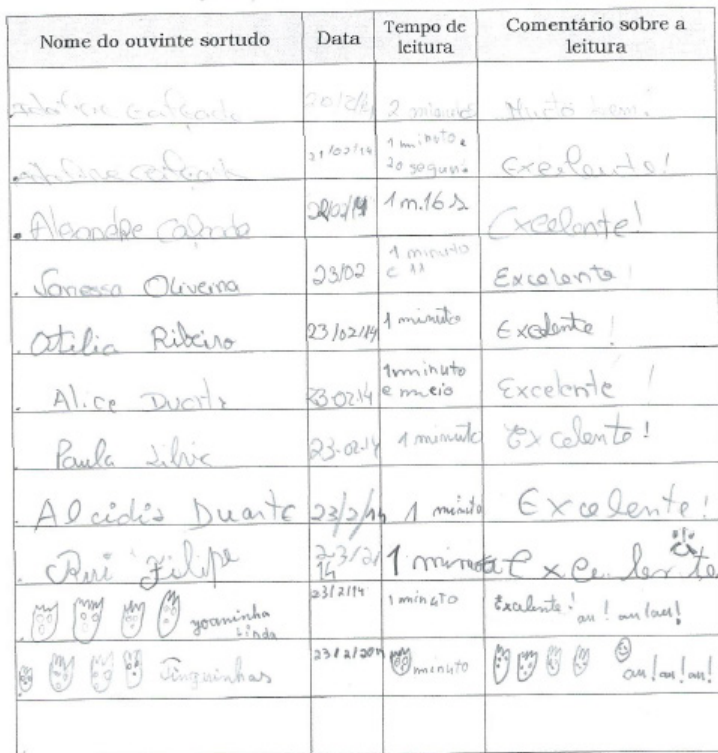 Nome do ouvinte sortudo Data Tempo de leitura Comentário sobre a leitura
20/2/14 2 minutos Muito bem!
21/02/14 1 minuto e 20 segund Excelente!
Alexandre 22/02/14 1 m.16 s Excelente!
Vanessa Oliveira 23/02 1 minuto e 11 Excelente!
Otilia Ribeiro 23/02/14 1 minuto Excelente!
Alice Duarte 23-02.14 1 minuto e meio Excelente!
Paula Silva 23-02-14 1 minuto Excelente!
Alcidis Duarte 23/2/14 1 minuto Excelente!
Rui Filipe 23/2/14 1 minuto Excelente
yoaninha linda 23/2/14 1 minuto Excelente! au! au! au!
Jinguinhas 23/2/2014 minuto au! au! au!